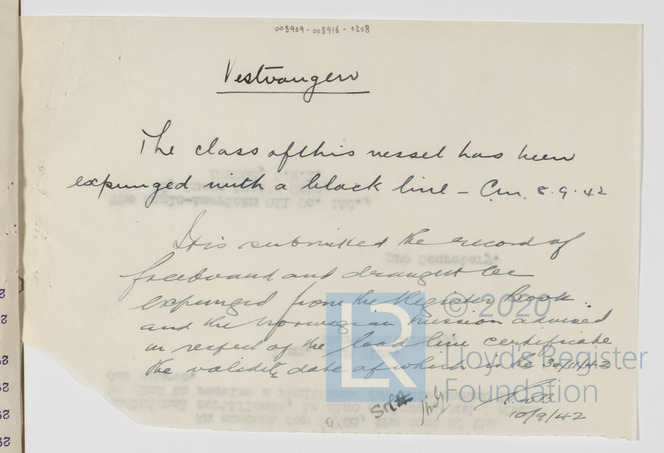 008909-008916-0208
Vestvangen
The class of this vessel has been
expunged with a black line - Cm. 8.9.42
It is submitted the record of
freeboard and draught be
expunged from the Register Book.
and the Norwegian Mission advised
in respect of the load line certificate
the validity date of which is the 30/11/42
10/9/42
© 2020
LR
Lloyd's Register
Foundation